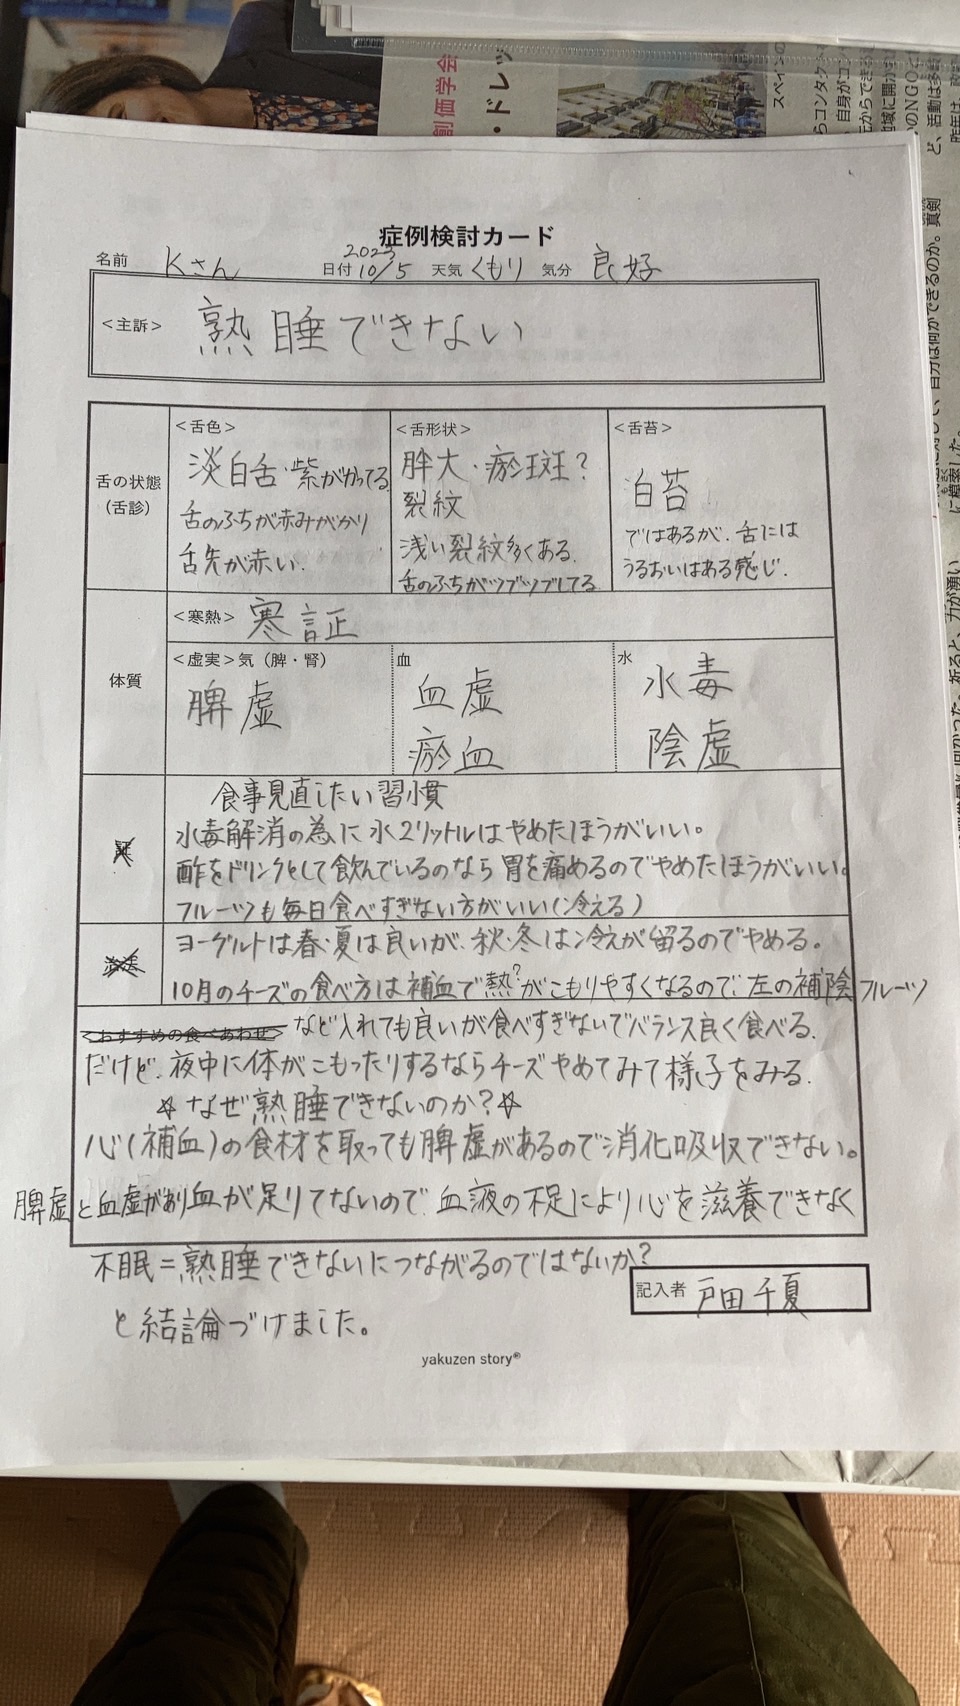 創価学会
・ドレッ
スペインの
らコンタクト
、自身がコ
元からできる
地域に開か
のNGOと
ど、活動は多
昨年は、
真剣
自分は何ができるのか。
に模索した。
力が湧い
症例検討カード
名前 Kさん 日付 2023 10/5 天気 くもり 気分 良好
<主訴> 熟睡できない
舌の状態
(舌診)
<舌色>
淡白舌・紫がかってる
舌のふちが赤みがかり
舌先が赤い.
<舌形状>
胖大・瘀斑?
裂紋
浅い裂紋多くある.
舌のふちがツブツブしてる
<舌苔>
白苔
ではあるが、舌には
うるおいはある感じ.
体質
<寒熱> 寒証
<虚実>気(脾・腎)
脾虚
血
血虚
瘀血
水
水毒
陰虚
食事見直したい習慣
水毒解消の為に水2リットルはやめたほうがいい。
酢をドリンクとして飲んでいるのなら胃を痛めるのでやめたほうがいい。
フルーツも毎日食べすぎない方がいい(冷える)
ヨーグルトは春・夏は良いが、秋・冬は冷えが留るのでやめる。
10月のチーズの食べ方は補血で熱?がこもりやすくなるので、左の補陰フルーツ
<おすすめの食べあわせ> など入れても良いが食べすぎないでバランス良く食べる.
だけど、夜中に体がこもったりするならチーズやめてみて様子をみる.
☆なぜ熟睡できないのか?☆
心(補血)の食材を取っても脾虚があるので消化吸収できない。
脾虚と血虚があり血が足りてないので、血液の不足により心を滋養できなく
不眠=熟睡できないにつながるのではないか?
と結論づけました。
記入者 戸田千夏
yakuzen story®